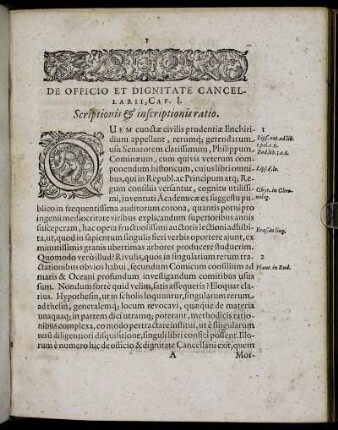 1
DE OFFICIO ET DIGNITATE CANCEL-
LARII, CAP. I.
Scriptionis & inscriptionis ratio.
QUEM cunctæ civilis prudentiæ Enchiri-
dium appellant, rerumq; gerendarum
usu Senatorem clarissimum, Philippum
Cominæum, cum quivis veterum com-
ponendum historicum, cujus libri omni-
bus, qui in Republ. ac Principum atq; Re-
gum consiliis versantur, cognitu utilissi-
mi, juventuti Academicæ ex suggestu pu-
blico in frequentissima auditorum corona, quantis potui pro
ingenii mediocritate viribus explicandum superioribus annis
susceperam, hac opera fructuosissimi auctoris lectioni adhibi-
ta, ut, quod in sapientum singulis fieri verbis oportere ajunt, ex
minimissimis granis ubertimas arbores producere studuerim.
Quomodo verò illud? Rivulis, quos in singularium rerum tra-
ctationibus obvios habui, secundum Comicum consilium ad
maris & Oceani profundum investigandum comitibus usus
sum. Nondum fortè quid velim, satis assequeris? Eloquar
clarius. Hypothesin, ut in scholis loquuntur, singularum rerum,
ad thesin, generalemq; locum revocavi, quæque de materia
unaquaq; in partem dici utramq; poterant, methodicis ratio-
nibus complexa, eo modo pertractare institui, ut è singularum
rerū diligentiori disquisitione, singuli libri confici possent. Illo-
rum è numero hic de officio & dignitate Cancellarii exit, quem
A
Mor-
1
2